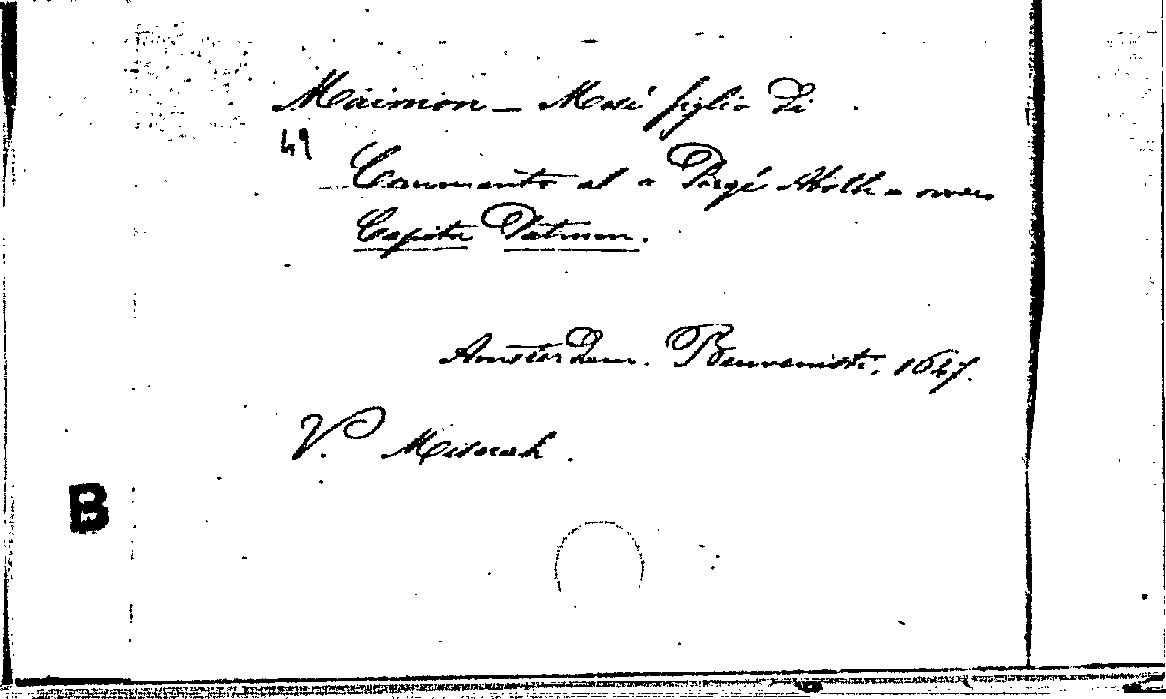 Maimon — Mosè figlio di
49
Commento al a Pirqé Aboth - ovvero
Capita Patrum.
Amsterdam. Benveniste, 1647.
V. Misnah.
B